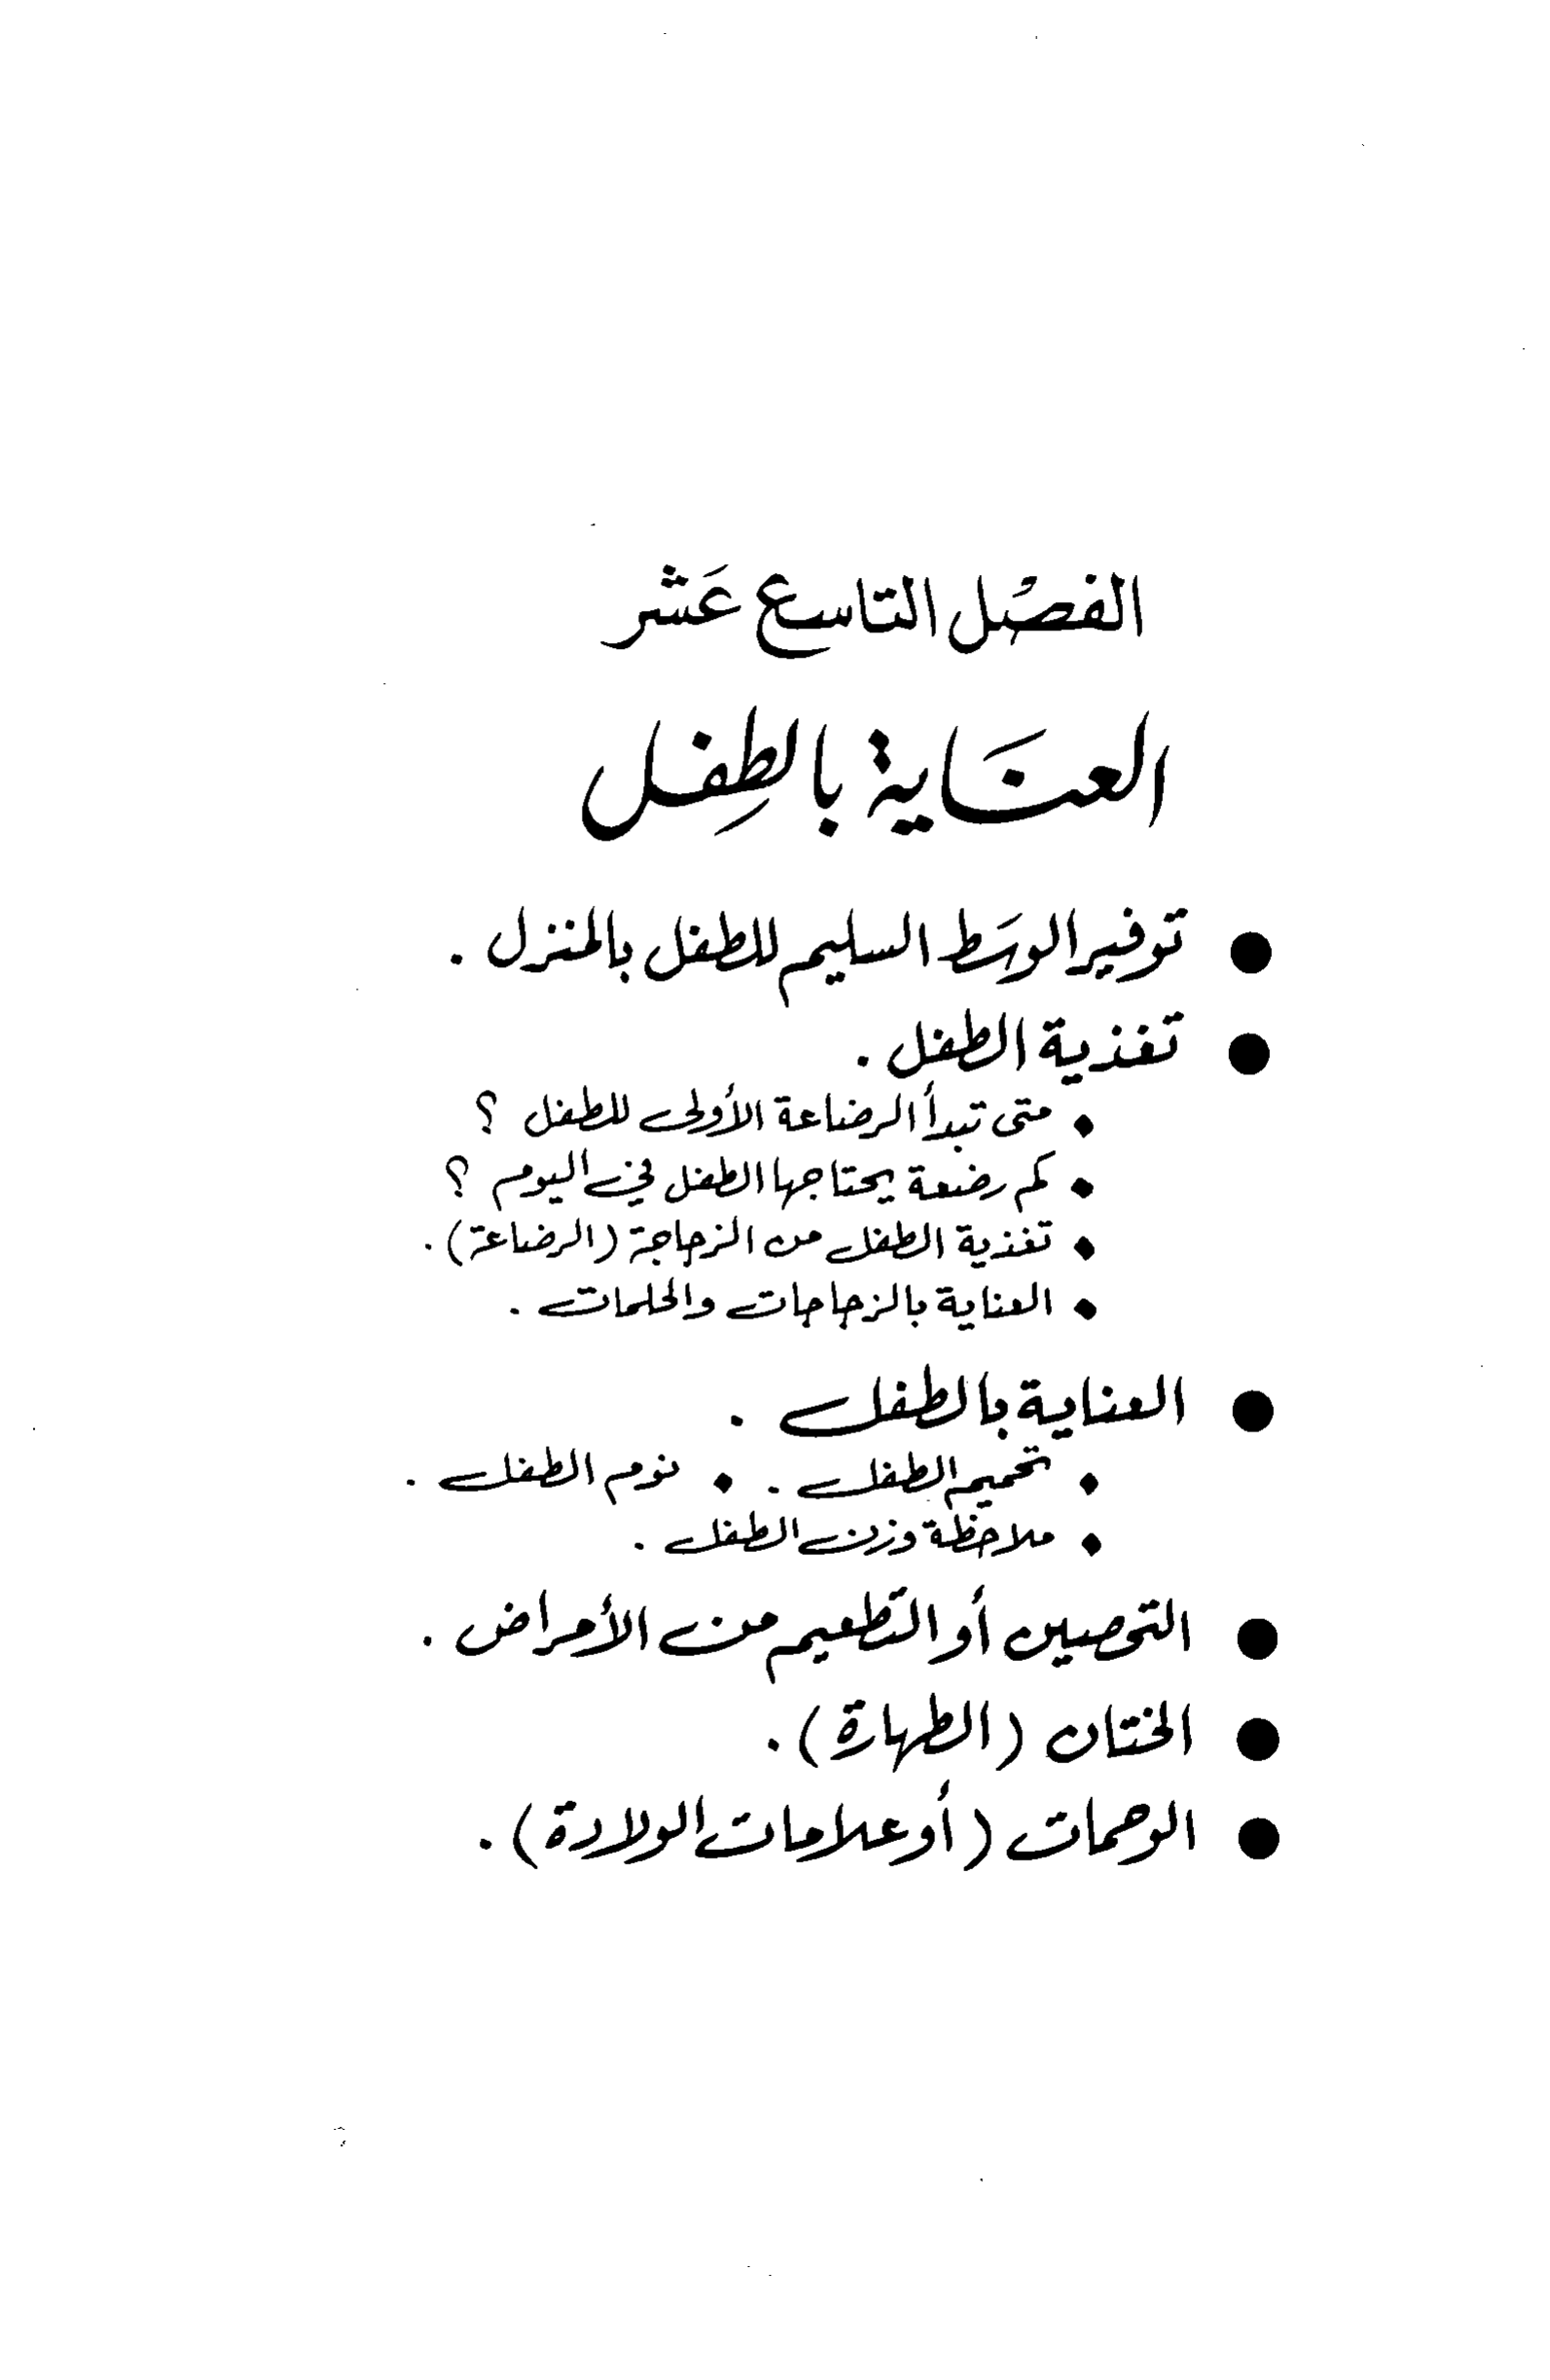 الفصل التاسع عَشر
العنَاية بالطِفل
● توفير الوسَط السليم للطفل بالمنزل .
● تغذية الطفل .
• متى تبدأ الرضاعة الأولى للطفل ؟
• كم رضعة يحتاجها الطفل في اليوم ؟
• تغذية الطفل من الزجاجة (الرضاعة) .
• العناية بالزجاجات والحلمات .
● العناية بالطفل .
• تحميم الطفل . • نوم الطفل .
• ملاحظة وزن الطفل .
● التحصين أو التطعيم من الأمراض .
● الختان (الطهارة) .
● الوحمات (أو علامات الولادة) .